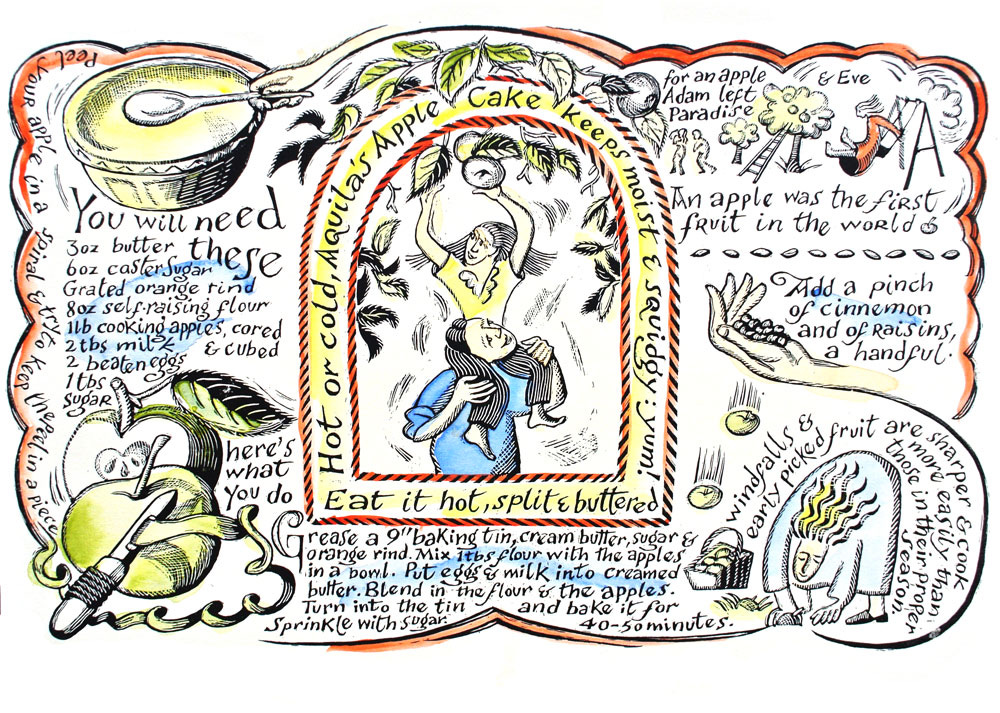 Peel your apple in a spiral & try to keep the peel in a piece
You will need
these
3oz butter
6oz caster sugar
Grated orange rind
8oz self-raising flour
1lb cooking apples, cored
& cubed
2 tbs milk
2 beaten eggs
1 tbs
sugar
here's
what
you do
Hot or cold, Aquila's Apple Cake keeps moist & squidgy: yum!
Eat it hot, split & buttered
Grease a 9" baking tin, cream butter, sugar &
orange rind. Mix 1tbs flour with the apples
in a bowl. Put eggs & milk into creamed
butter. Blend in the flour & the apples.
Turn into the tin and bake it for
Sprinkle with sugar. 40-50 minutes.
for an apple
Adam left
Paradise
& Eve
An apple was the first
fruit in the world
Add a pinch
of cinnemon
and of raisins,
a handful.
windfalls &
early picked fruit are sharper & cook
more easily than
those in their proper
season.